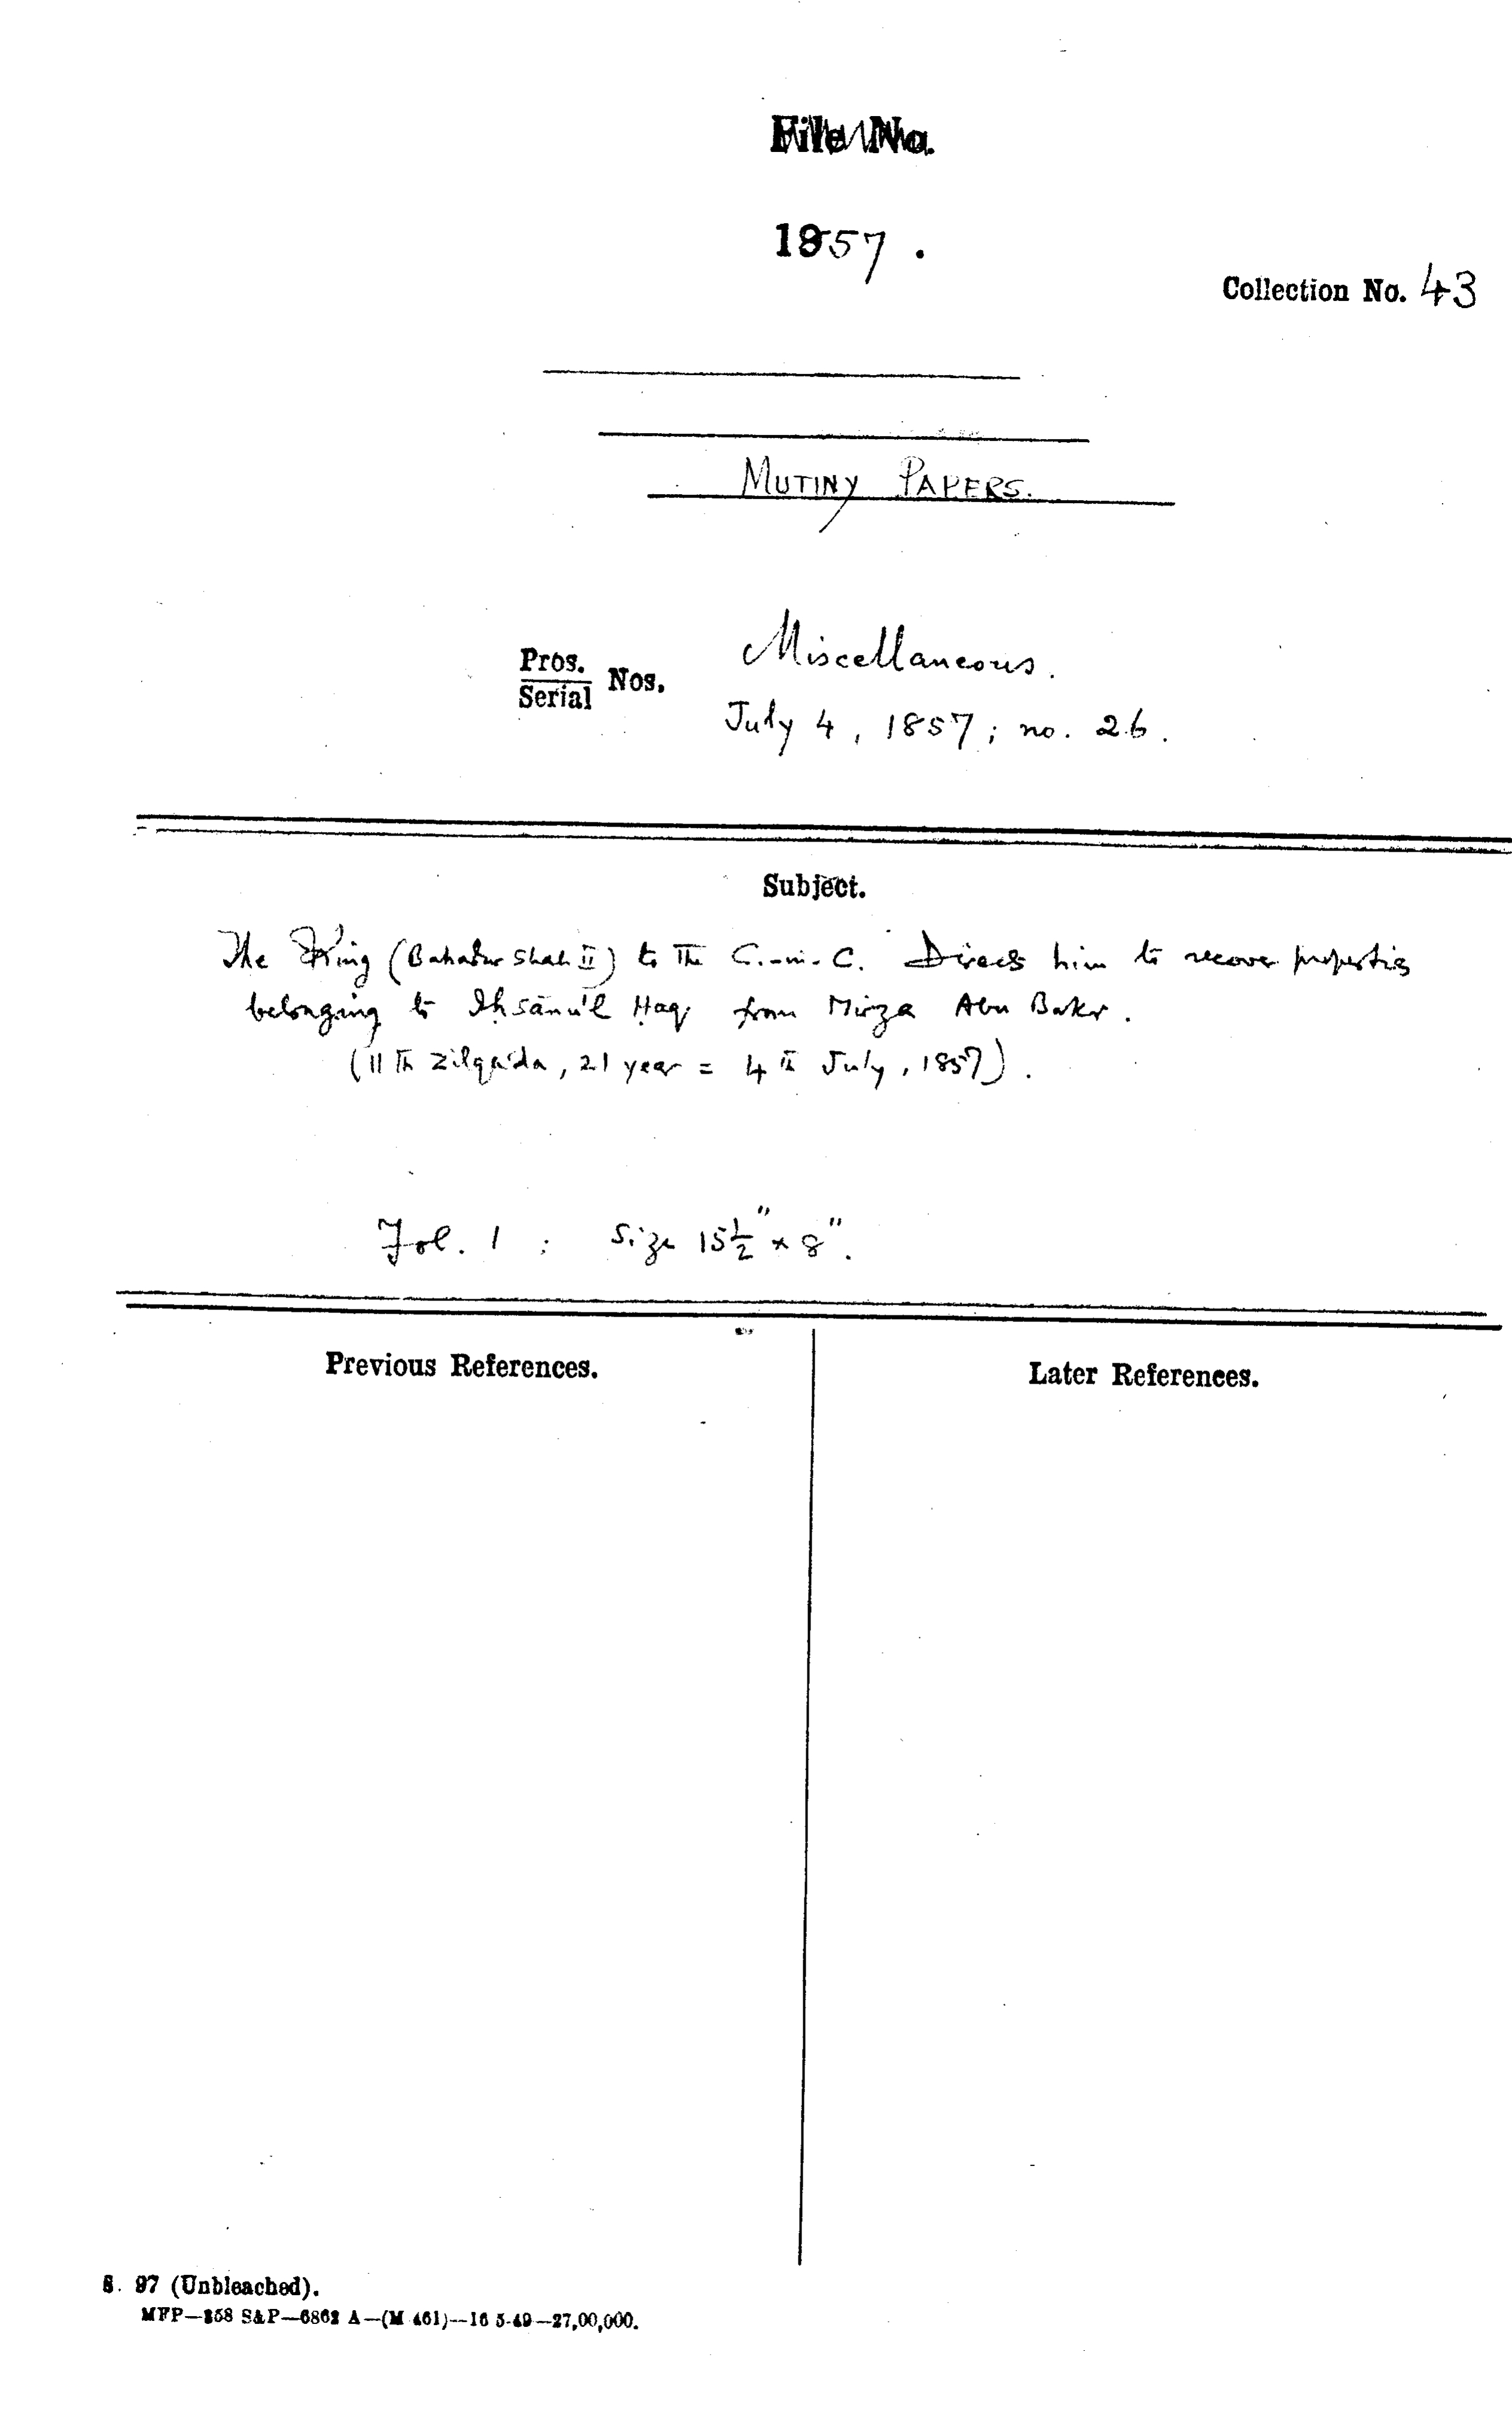 File No.
1857.
Collection No. 43
MUTINY PAPERS.
Pros.
Serial Nos.
Miscellaneous.
July 4, 1857; no. 26.
Subject.
The King (Bahadur Shah II) to the C.-in-C. Directs him to recover properties
belonging to Ihsānu'l Haq from Mirza Abu Bakr.
(11th Zilqa'da, 21 year = 4th July, 1857).
Fol. 1 ; Size 15½" x 8".
Previous References.
Later References.
S. 97 (Unbleached).
MFP—858 S&P—6862 A—(M 461)—16 5-49—27,00,000.